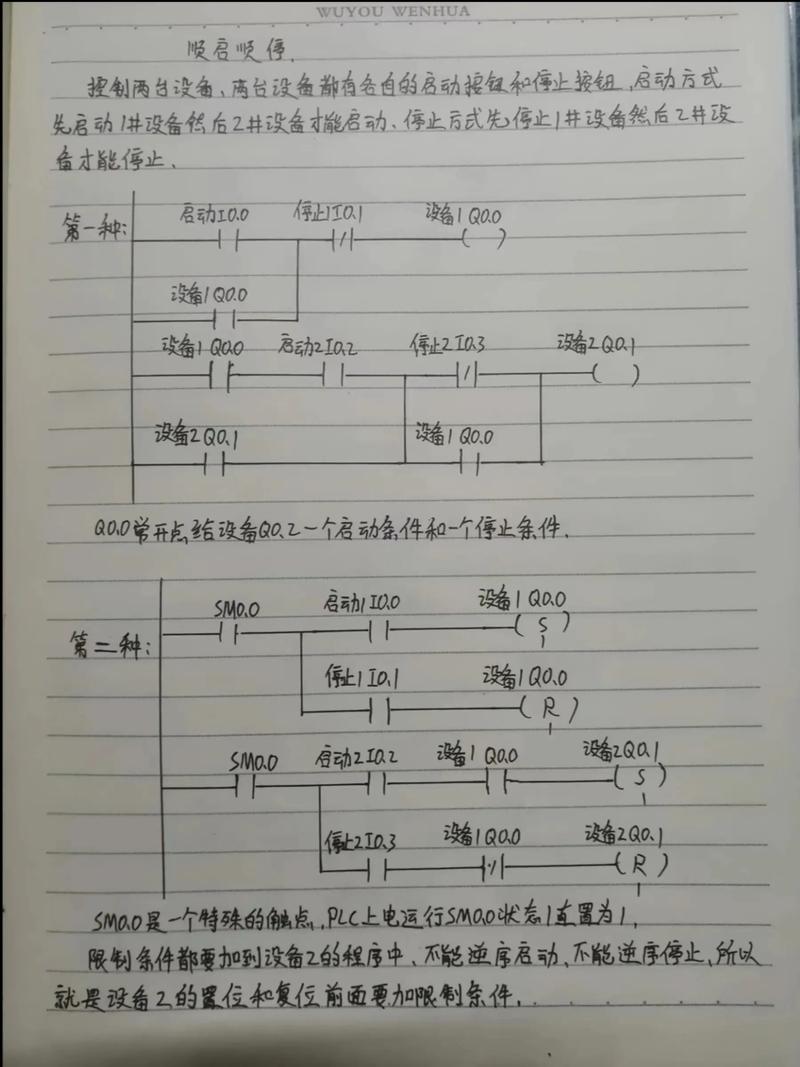 WUYOU WENHUA
顺启顺停.
控制两台设备、两台设备都有各自的启动按钮和停止按钮,启动方式
先启动1#设备然后2#设备才能启动、停止方式先停止1#设备然后2#设
备才能停止、
第一种:
启动I0.0 停止1I0.1 设备1Q0.0
设备1Q0.0
设备1Q0.0 启动2I0.2 停止2I0.3 设备2Q0.1
设备2Q0.1 设备1Q0.0
Q0.0常开点给设备Q0.2一个启动条件和一个停止条件.
第二种:
SM0.0 启动1I0.0 设备1Q0.0
S
1
停止1I0.1 设备1Q0.0
R
1
SM0.0 启动2I0.2 设备1Q0.0 设备2Q0.1
S
1
停止2I0.3 设备1Q0.0 设备2Q0.1
R
1
SM0.0是一个特殊的触点,PLC上电运行SM0.0状态1直置为1,
限制条件都要加到设备2的程序中、不能逆序启动、不能逆序停止、所以
就是设备2的置位和复位前面要加限制条件,